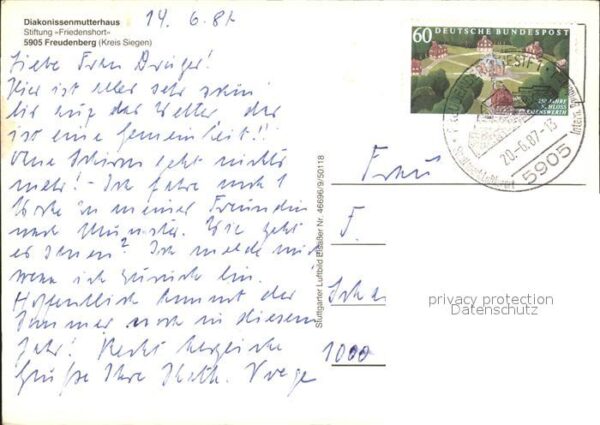 Diakonissenmutterhaus
Stiftung »Friedenshort«
5905 Freudenberg (Kreis Siegen)
14. 6. 87
Liebe Frau Dräger!
Hier ist alles sehr schön
bis auf das Wetter, das
ist eine Gemeinheit!!
Ohne Schirm geht nichts
mehr! - Ich fahre noch 1
Woche zu meiner Freundin
nach Münster. Wie geht
es Ihnen? Ich melde mich
wenn ich zurück bin.
Hoffentlich kommt der
Sommer noch in diesem
Jahr! Recht herzliche
Grüße Ihre Kath.
Stuttgarter Luftbild Elsäßer Nr. 46696/9/50118
60 DEUTSCHE BUNDESPOST
250 JAHRE
SCHLOSS
CLEMENSWERTH
20.-6.87-13
5905
Frau
F.
1000
privacy protection
Datenschutz